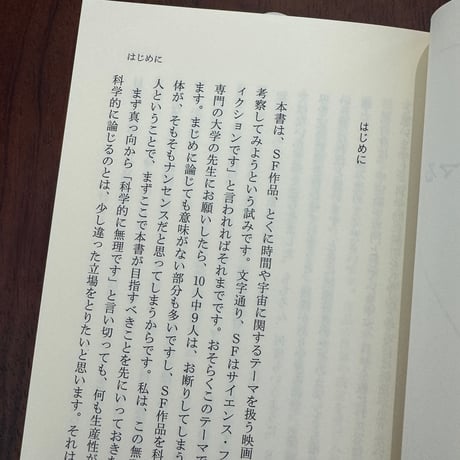 はじめに
はじめに
本書は、SF作品、とくに時間や宇宙に関するテーマを扱う映画
考察してみようという試みです。文字通り、SFはサイエンス・フ
ィクションです」と言われればそれまでです。おそらくこのテーマで
専門の大学の先生にお願いしたら、10人中9人は、お断りしてしまう
ます。まじめに論じても意味がない部分も多いですし、SF作品を科
体が、そもそもナンセンスだと思ってしまうからです。私は、この無
人ということで、まずここで本書が目指すべきことを先にいっておきた
まず真っ向から「科学的に無理です」と言い切っても、何も生産性が
科学的に論じるのとは、少し違った立場をとりたいと思います。それは